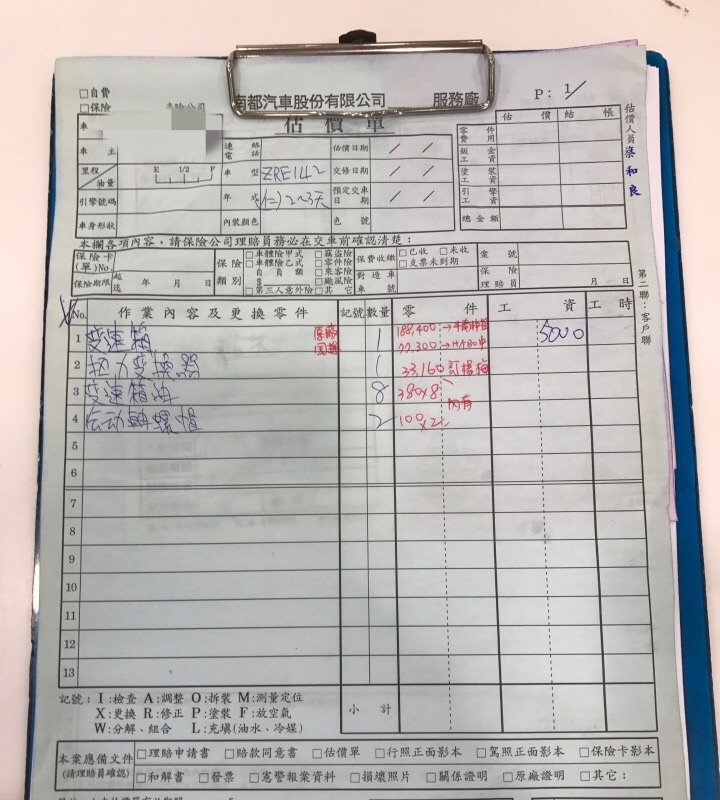 □自費
□保險 產險公司
南都汽車股份有限公司 服務廠 P: 1/
估價單
車
車主 連絡電話 估價日期 / /
里程/油量 E 1/2 F 車型 ZRE142 交修日期 / /
引擎號碼 年式 預定交車日期 / /
車身形狀 內裝顏色 色號
估價 結帳
零件費用
鈑金工資
塗裝工資
引擎工資
總金額
估價人員
本欄各項內容，請保險公司理賠員務必在交車前確認清楚：
保險卡(單)No. 保險類別 □車體險甲式 □竊盜險 保費收繳 □已收 □未收 案號
□車體險乙式 □零件險 □支票未到期
保險期限 起 年 月 日 自負額 □乘客險 對造車車號 保險理賠員 月 日
迄 $ □颱風險
□第三人意外險 □其它
No. 作業內容及更換零件 記號 數量 零件 工資 工時
1 变速箱 原廠 1 188,400 5000
2 扭力变換器 1 33,160
3 变速箱油 8 380x8 內有
4 传动軸螺帽 2 100x2
5
6
7
8
9
10
11
12
13
第二聯：客戶聯
記號：I:檢查 A:調整 O:拆裝 M:測量定位
X:更換 R:修正 P:塗裝 F:放空氣
W:分解、組合 L:充填(油水、冷媒)
小計
本案應備文件(請理賠員確認) □理賠申請書 □賠款同意書 □估價單 □行照正面影本 □駕照正面影本 □保險卡影本
□和解書 □發票 □憲警報案資料 □損壞照片 □關係證明 □原廠證明 □其它：